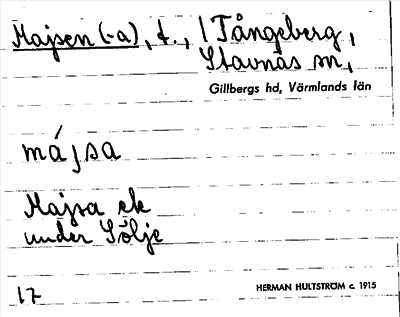 Majsen (-a), t., / Tångeberg,
Stavnäs sn,
Gillbergs hd, Värmlands län
májsa
Majsa ek
under Sölje
17
HERMAN HULTSTRÖM c. 1915